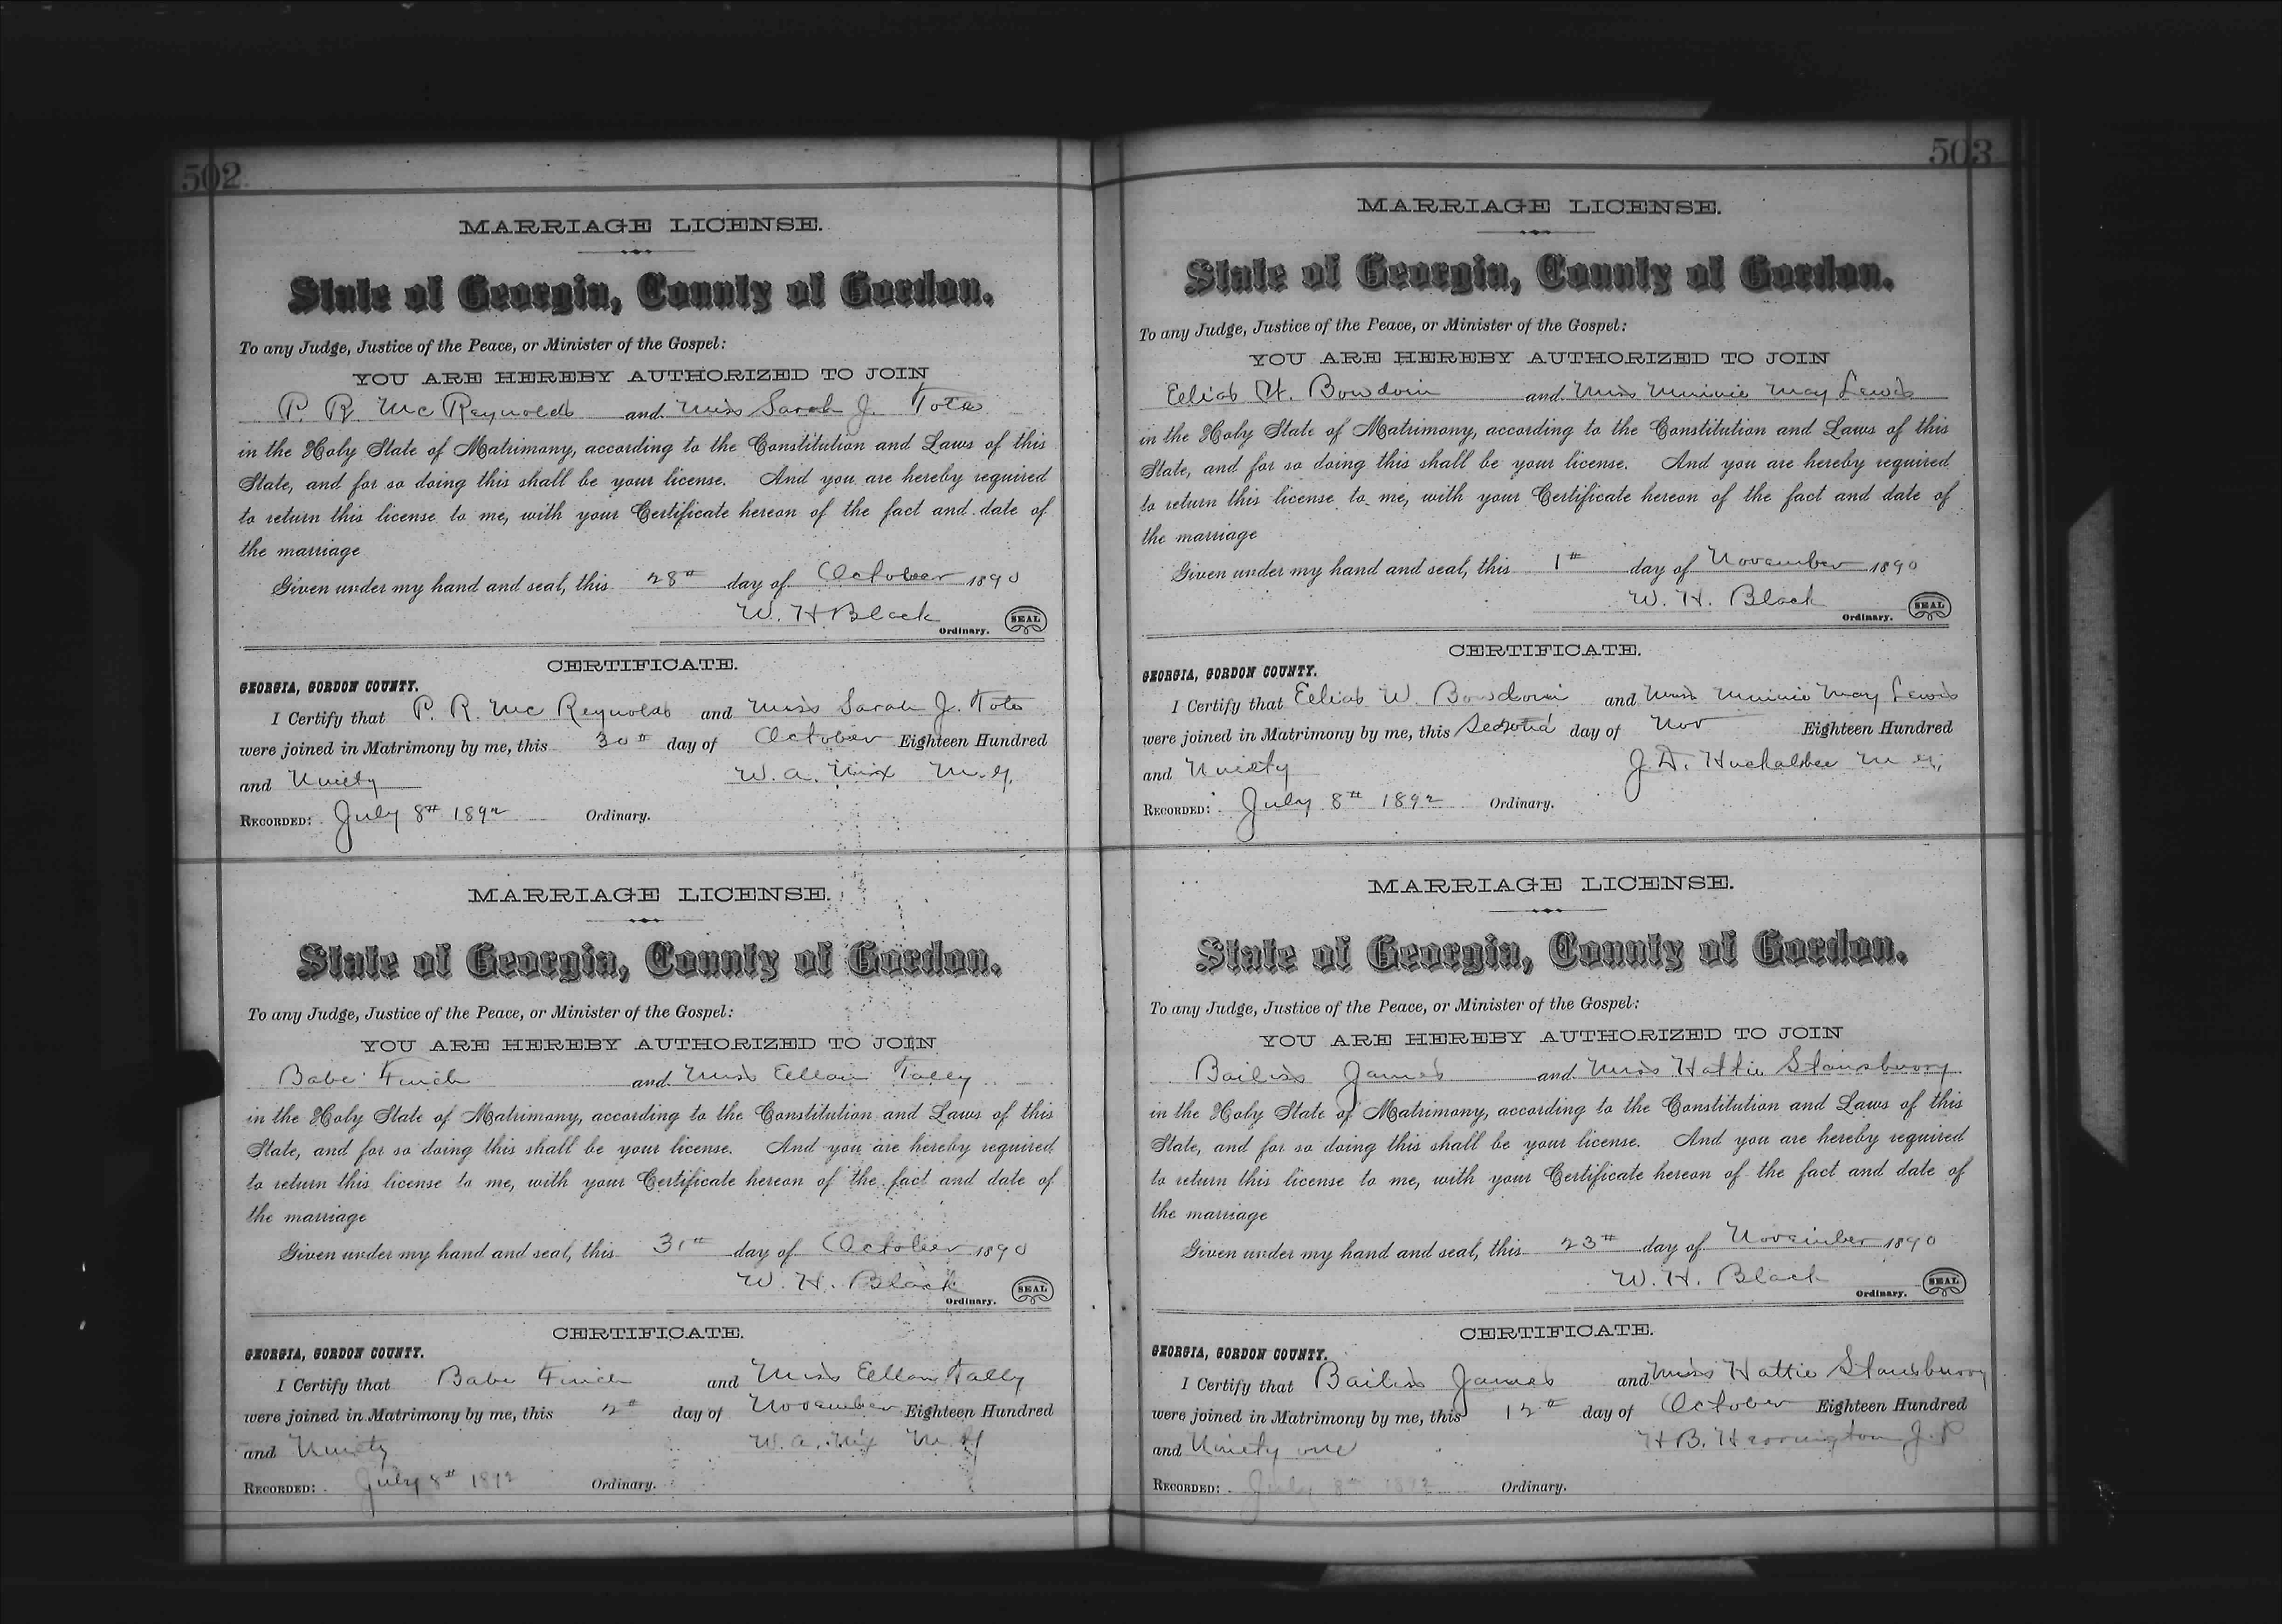 502
MARRIAGE LICENSE.
State of Georgia, County of Gordon.
To any Judge, Justice of the Peace, or Minister of the Gospel:
YOU ARE HEREBY AUTHORIZED TO JOIN
P. R. McReynolds and Miss Sarah J.
in the Holy State of Matrimony, according to the Constitution and Laws of this
State, and for so doing this shall be your license. And you are hereby required
to return this license to me, with your Certificate hereon of the fact and date of
the marriage
Given under my hand and seal, this 28th day of October 1890
W. H Black
Ordinary. SEAL
CERTIFICATE.
GEORGIA, GORDON COUNTY.
I Certify that P. R. McReynolds and Miss Sarah J.
were joined in Matrimony by me, this 30th day of October Eighteen Hundred
and Ninety W. A. Nix M. G.
RECORDED: July 8th 1892 Ordinary.
MARRIAGE LICENSE.
State of Georgia, County of Gordon.
To any Judge, Justice of the Peace, or Minister of the Gospel:
YOU ARE HEREBY AUTHORIZED TO JOIN
Babe Finch and Miss Ellan Tally
in the Holy State of Matrimony, according to the Constitution and Laws of this
State, and for so doing this shall be your license. And you are hereby required
to return this license to me, with your Certificate hereon of the fact and date of
the marriage
Given under my hand and seal, this 31th day of October 1890
W. H. Black
Ordinary. SEAL
CERTIFICATE.
GEORGIA, GORDON COUNTY.
I Certify that Babe Finch and Miss Ellan Tally
were joined in Matrimony by me, this 2th day of November Eighteen Hundred
and Ninety W. A. Nix M. G
RECORDED: July 8th 1892 Ordinary.
503
MARRIAGE LICENSE.
State of Georgia, County of Gordon.
To any Judge, Justice of the Peace, or Minister of the Gospel:
YOU ARE HEREBY AUTHORIZED TO JOIN
Elias W. Bowdoin and Miss Minnie May Lewis
in the Holy State of Matrimony, according to the Constitution and Laws of this
State, and for so doing this shall be your license. And you are hereby required
to return this license to me, with your Certificate hereon of the fact and date of
the marriage
Given under my hand and seal, this 1th day of November 1890
W. H. Black
Ordinary. SEAL
CERTIFICATE.
GEORGIA, GORDON COUNTY.
I Certify that Elias W. Bowdoin and Miss Minnie May Lewis
were joined in Matrimony by me, this Second day of Nov Eighteen Hundred
and Ninety J. D. Huckabee M. G.
RECORDED: July 8th 1892 Ordinary.
MARRIAGE LICENSE.
State of Georgia, County of Gordon.
To any Judge, Justice of the Peace, or Minister of the Gospel:
YOU ARE HEREBY AUTHORIZED TO JOIN
Bailiss James and Miss Hattie Stansburry
in the Holy State of Matrimony, according to the Constitution and Laws of this
State, and for so doing this shall be your license. And you are hereby required
to return this license to me, with your Certificate hereon of the fact and date of
the marriage
Given under my hand and seal, this 23th day of November 1890
W. H. Black
Ordinary. SEAL
CERTIFICATE.
GEORGIA, GORDON COUNTY.
I Certify that Bailiss James and Miss Hattie Stansburry
were joined in Matrimony by me, this 12th day of October Eighteen Hundred
and Ninety one H B. Herrington J. P
RECORDED: July 8th 1892 Ordinary.